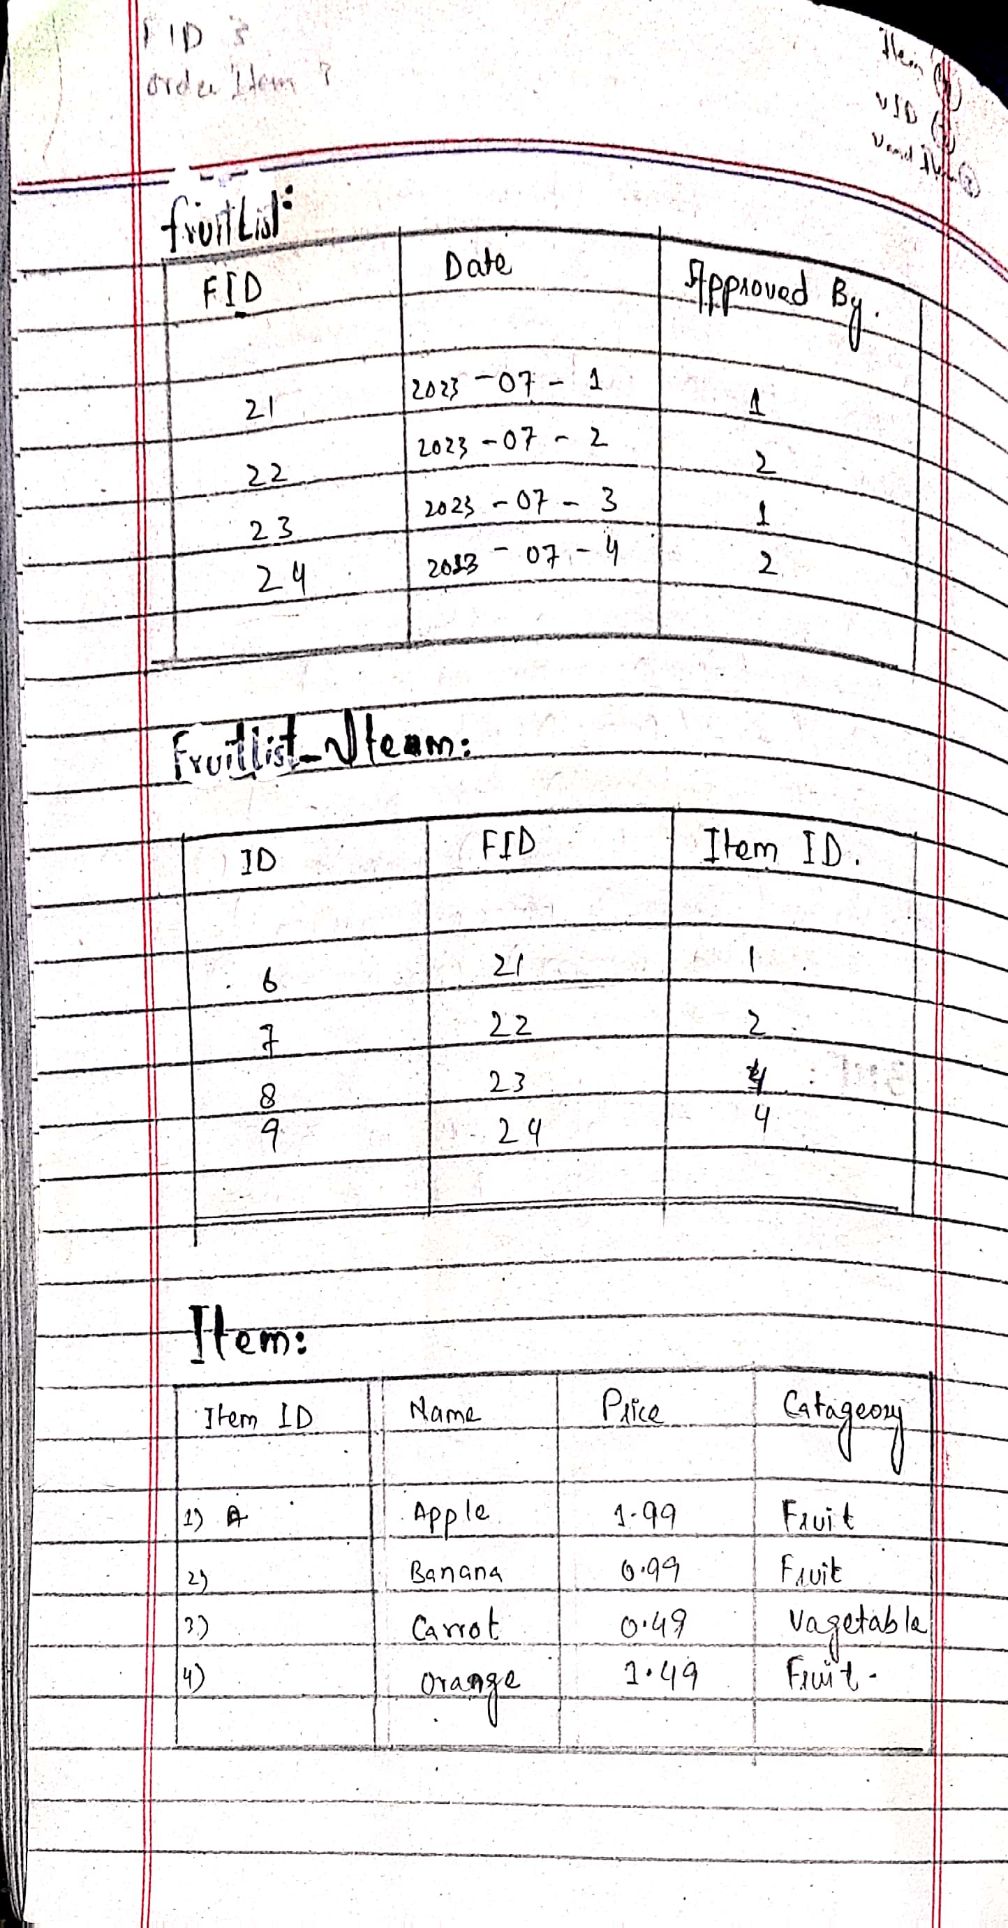 FID 3
order Item ?
Item
VID
fruitlist:
FID Date Approved By.
21 2023-07-1 1
22 2023-07-2 2
23 2023-07-3 1
24 2023-07-4 2
Fruitlist_Iteam:
ID FID Item ID.
6 21 1
7 22 2
8 23 4
9 24 4
Item:
Item ID Name Price Catageory
1) A Apple 1.99 Fruit
2) Banana 0.99 Fruit
3) Carrot 0.49 Vagetable
4) Orange 1.49 Fruit.